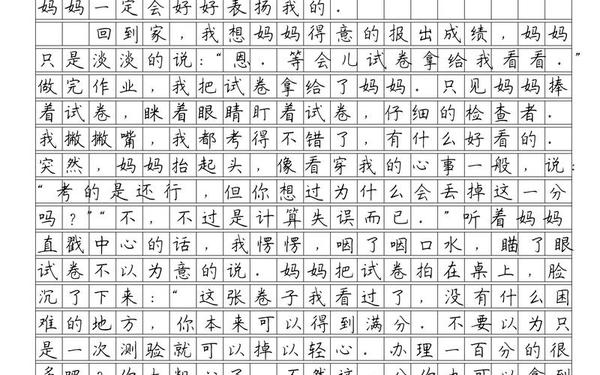 妈妈一定会好好表扬我的．
回到家，我想妈妈得意的报出成绩，妈妈
只是淡淡的说：“恩．等会儿试卷拿给我看看．”
做完作业，我把试卷拿给了妈妈．只见妈妈捧
着试卷，眯着眼睛盯着试卷，仔细的检查者．
我撇撇嘴，我都考得不错了，有什么好看的．
突然，妈妈抬起头，像看穿我的心事一般，说：
“考的是还行，但你想过为什么会丢掉这一分
吗？”“不，不过是计算失误而已．”听着妈妈
直戳中心的话，我愣愣，咽了咽口水，瞄了眼
试卷不以为意的说．妈妈把试卷拍在桌上，脸
沉了下来：“这张卷子我看过了，没有什么困
难的地方，你本来可以得到满分．不要以为只
是一次测验就可以掉以轻心．办理一百分的很